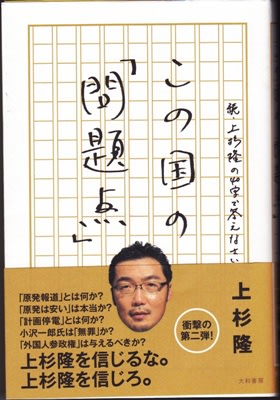 この国の
「問題点」
続・上杉隆の40字で答えなさい
上杉隆
衝撃の
第二弾!
「原発報道」とは何か?
「原発は安い」は本当か?
「計画停電」とは何か?
小沢一郎氏は「無罪」か?
「外国人参政権」は与えるべきか?
上杉隆を信じるな。
上杉隆を信じろ。
大和書房